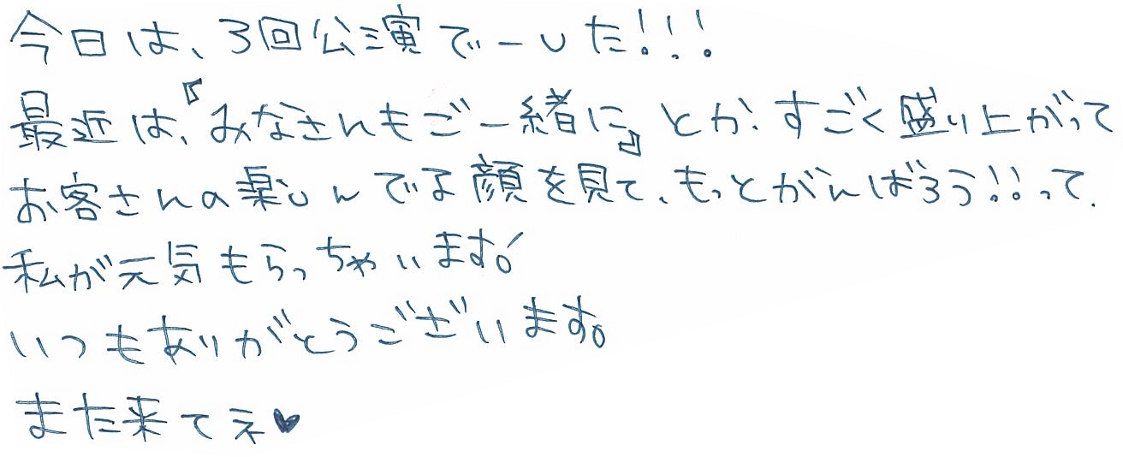 今日は、3回公演でーした!!!
最近は、『みなさんもご一緒に』とか、すごく盛り上がって
お客さんの楽しんでる顔を見て、もっとがんばろう!!って、
私が元気もらっちゃいます。
いつもありがとうございます。
また来てネ♥